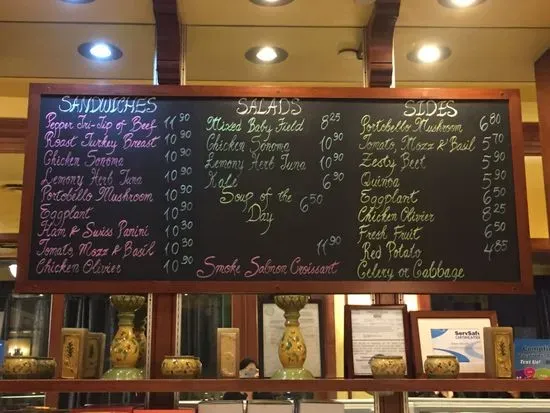 SANDWICHES
Pepper Tri-Tip of Beef 11 90
Roast Turkey Breast 10 90
Chicken Sonoma 10 90
Lemony Herb Tuna 10 90
Portobello Mushroom 10 90
Eggplant 10 90
Ham & Swiss Panini 10 30
Tomato, Mozz & Basil 10 30
Chicken Olivier 10 90
SALADS
Mixed Baby Field 8 25
Chicken Sonoma 9 90
Lemony Herb Tuna 9 90
Kale 6 90
Soup of the
Day 6 50
11 90
Smoke Salmon Croissant
SIDES
Portobello Mushroom 6 80
Tomato, Mozz & Basil 5 70
Zesty Beet 5 90
Quinoa 5 90
Eggplant 6 50
Chicken Olivier 8 25
Fresh Fruit 6 50
Red Potato 4 85
Celery or Cabbage
ServSafe
CERTIFICATION